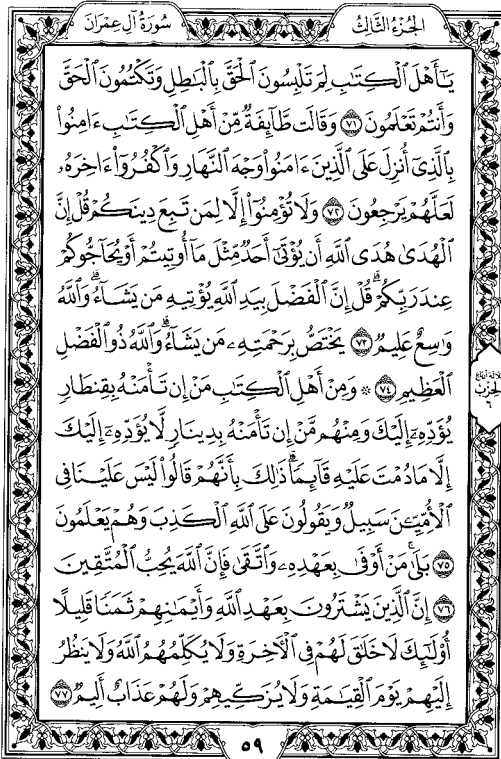 سُورَةُ آلِ عِمْرَانَ
الجُزْءُ الثَّالِثُ
يَٰٓأَهْلَ ٱلْكِتَٰبِ لِمَ تَلْبِسُونَ ٱلْحَقَّ بِٱلْبَٰطِلِ وَتَكْتُمُونَ ٱلْحَقَّ
وَأَنتُمْ تَعْلَمُونَ ٧١ وَقَالَت طَّآئِفَةٌ مِّنْ أَهْلِ ٱلْكِتَٰبِ ءَامِنُوا۟
بِٱلَّذِىٓ أُنزِلَ عَلَى ٱلَّذِينَ ءَامَنُوا۟ وَجْهَ ٱلنَّهَارِ وَٱكْفُرُوٓا۟ ءَاخِرَهُۥ
لَعَلَّهُمْ يَرْجِعُونَ ٧٢ وَلَا تُؤْمِنُوٓا۟ إِلَّا لِمَن تَبِعَ دِينَكُمْ قُلْ إِنَّ
ٱلْهُدَىٰ هُدَى ٱللَّهِ أَن يُؤْتَىٰٓ أَحَدٌ مِّثْلَ مَآ أُوتِيتُمْ أَوْ يُحَآجُّوكُمْ
عِندَ رَبِّكُمْ ۗ قُلْ إِنَّ ٱلْفَضْلَ بِيَدِ ٱللَّهِ يُؤْتِيهِ مَن يَشَآءُ ۗ وَٱللَّهُ
وَٰسِعٌ عَلِيمٌ ٧٣ يَخْتَصُّ بِرَحْمَتِهِۦ مَن يَشَآءُ ۗ وَٱللَّهُ ذُو ٱلْفَضْلِ
ٱلْعَظِيمِ ٧٤ ۞ وَمِنْ أَهْلِ ٱلْكِتَٰبِ مَنْ إِن تَأْمَنْهُ بِقِنطَارٍ
يُؤَدِّهِۦٓ إِلَيْكَ وَمِنْهُم مَّنْ إِن تَأْمَنْهُ بِدِينَارٍ لَّا يُؤَدِّهِۦٓ إِلَيْكَ
إِلَّا مَا دُمْتَ عَلَيْهِ قَآئِمًا ۗ ذَٰلِكَ بِأَنَّهُمْ قَالُوا۟ لَيْسَ عَلَيْنَا فِى
ٱلْأُمِّيِّۦنَ سَبِيلٌ وَيَقُولُونَ عَلَى ٱللَّهِ ٱلْكَذِبَ وَهُمْ يَعْلَمُونَ
٧٥ بَلَىٰ مَنْ أَوْفَىٰ بِعَهْدِهِۦ وَٱتَّقَىٰ فَإِنَّ ٱللَّهَ يُحِبُّ ٱلْمُتَّقِينَ
٧٦ إِنَّ ٱلَّذِينَ يَشْتَرُونَ بِعَهْدِ ٱللَّهِ وَأَيْمَٰنِهِمْ ثَمَنًا قَلِيلًا
أُو۟لَٰٓئِكَ لَا خَلَٰقَ لَهُمْ فِى ٱلْءَاخِرَةِ وَلَا يُكَلِّمُهُمُ ٱللَّهُ وَلَا يَنظُرُ
إِلَيْهِمْ يَوْمَ ٱلْقِيَٰمَةِ وَلَا يُزَكِّيهِمْ وَلَهُمْ عَذَابٌ أَلِيمٌ ٧٧
ثلاثة أرباع
الحزب
٦
٥٩